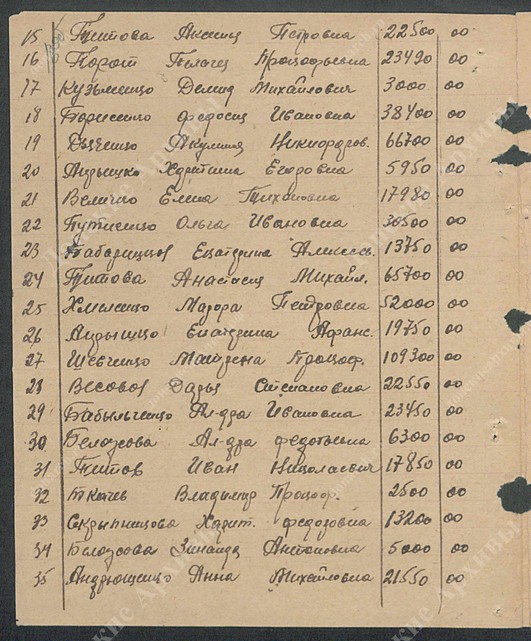 15 Титова Аксинья Петровна 22500 00
16 Порот Пелагея Прокофьевна 23490 00
17 Кузьменко Демид Михайлович 3000 00
18 Борисенко Федосия Ивановна 38400 00
19 Дьяченко Акулина Никифоров. 66700 00
20 Харитина Егоровна 5950 00
21 Величко Елена Тихоновна 17980 00
22 Путиенко Ольга Ивановна 30500 00
23 Екатерина Алексе. 13750 00
24 Титова Анастасия Михайл. 65700 00
25 Хмеленко Мавра Петровна 52000 00
26 Екатерина Афанс. 19750 00
27 Шевченко Матрена Прокоф. 109300 00
28 Весовая Дарья Степановна 22550 00
29 Бабыльченко Ал-дра Ивановна 23450 00
30 Белоусова Ал-дра Федотьевна 6300 00
31 Титов Иван Николаевич 17850 00
32 Ткачев Владимир Прокоф. 2500 00
33 Скрыпникова Харит. Федоровна 13200 00
34 Белоусова Зинаида Антоновна 5000 00
35 Андрющенко Анна Михайловна 21550 00